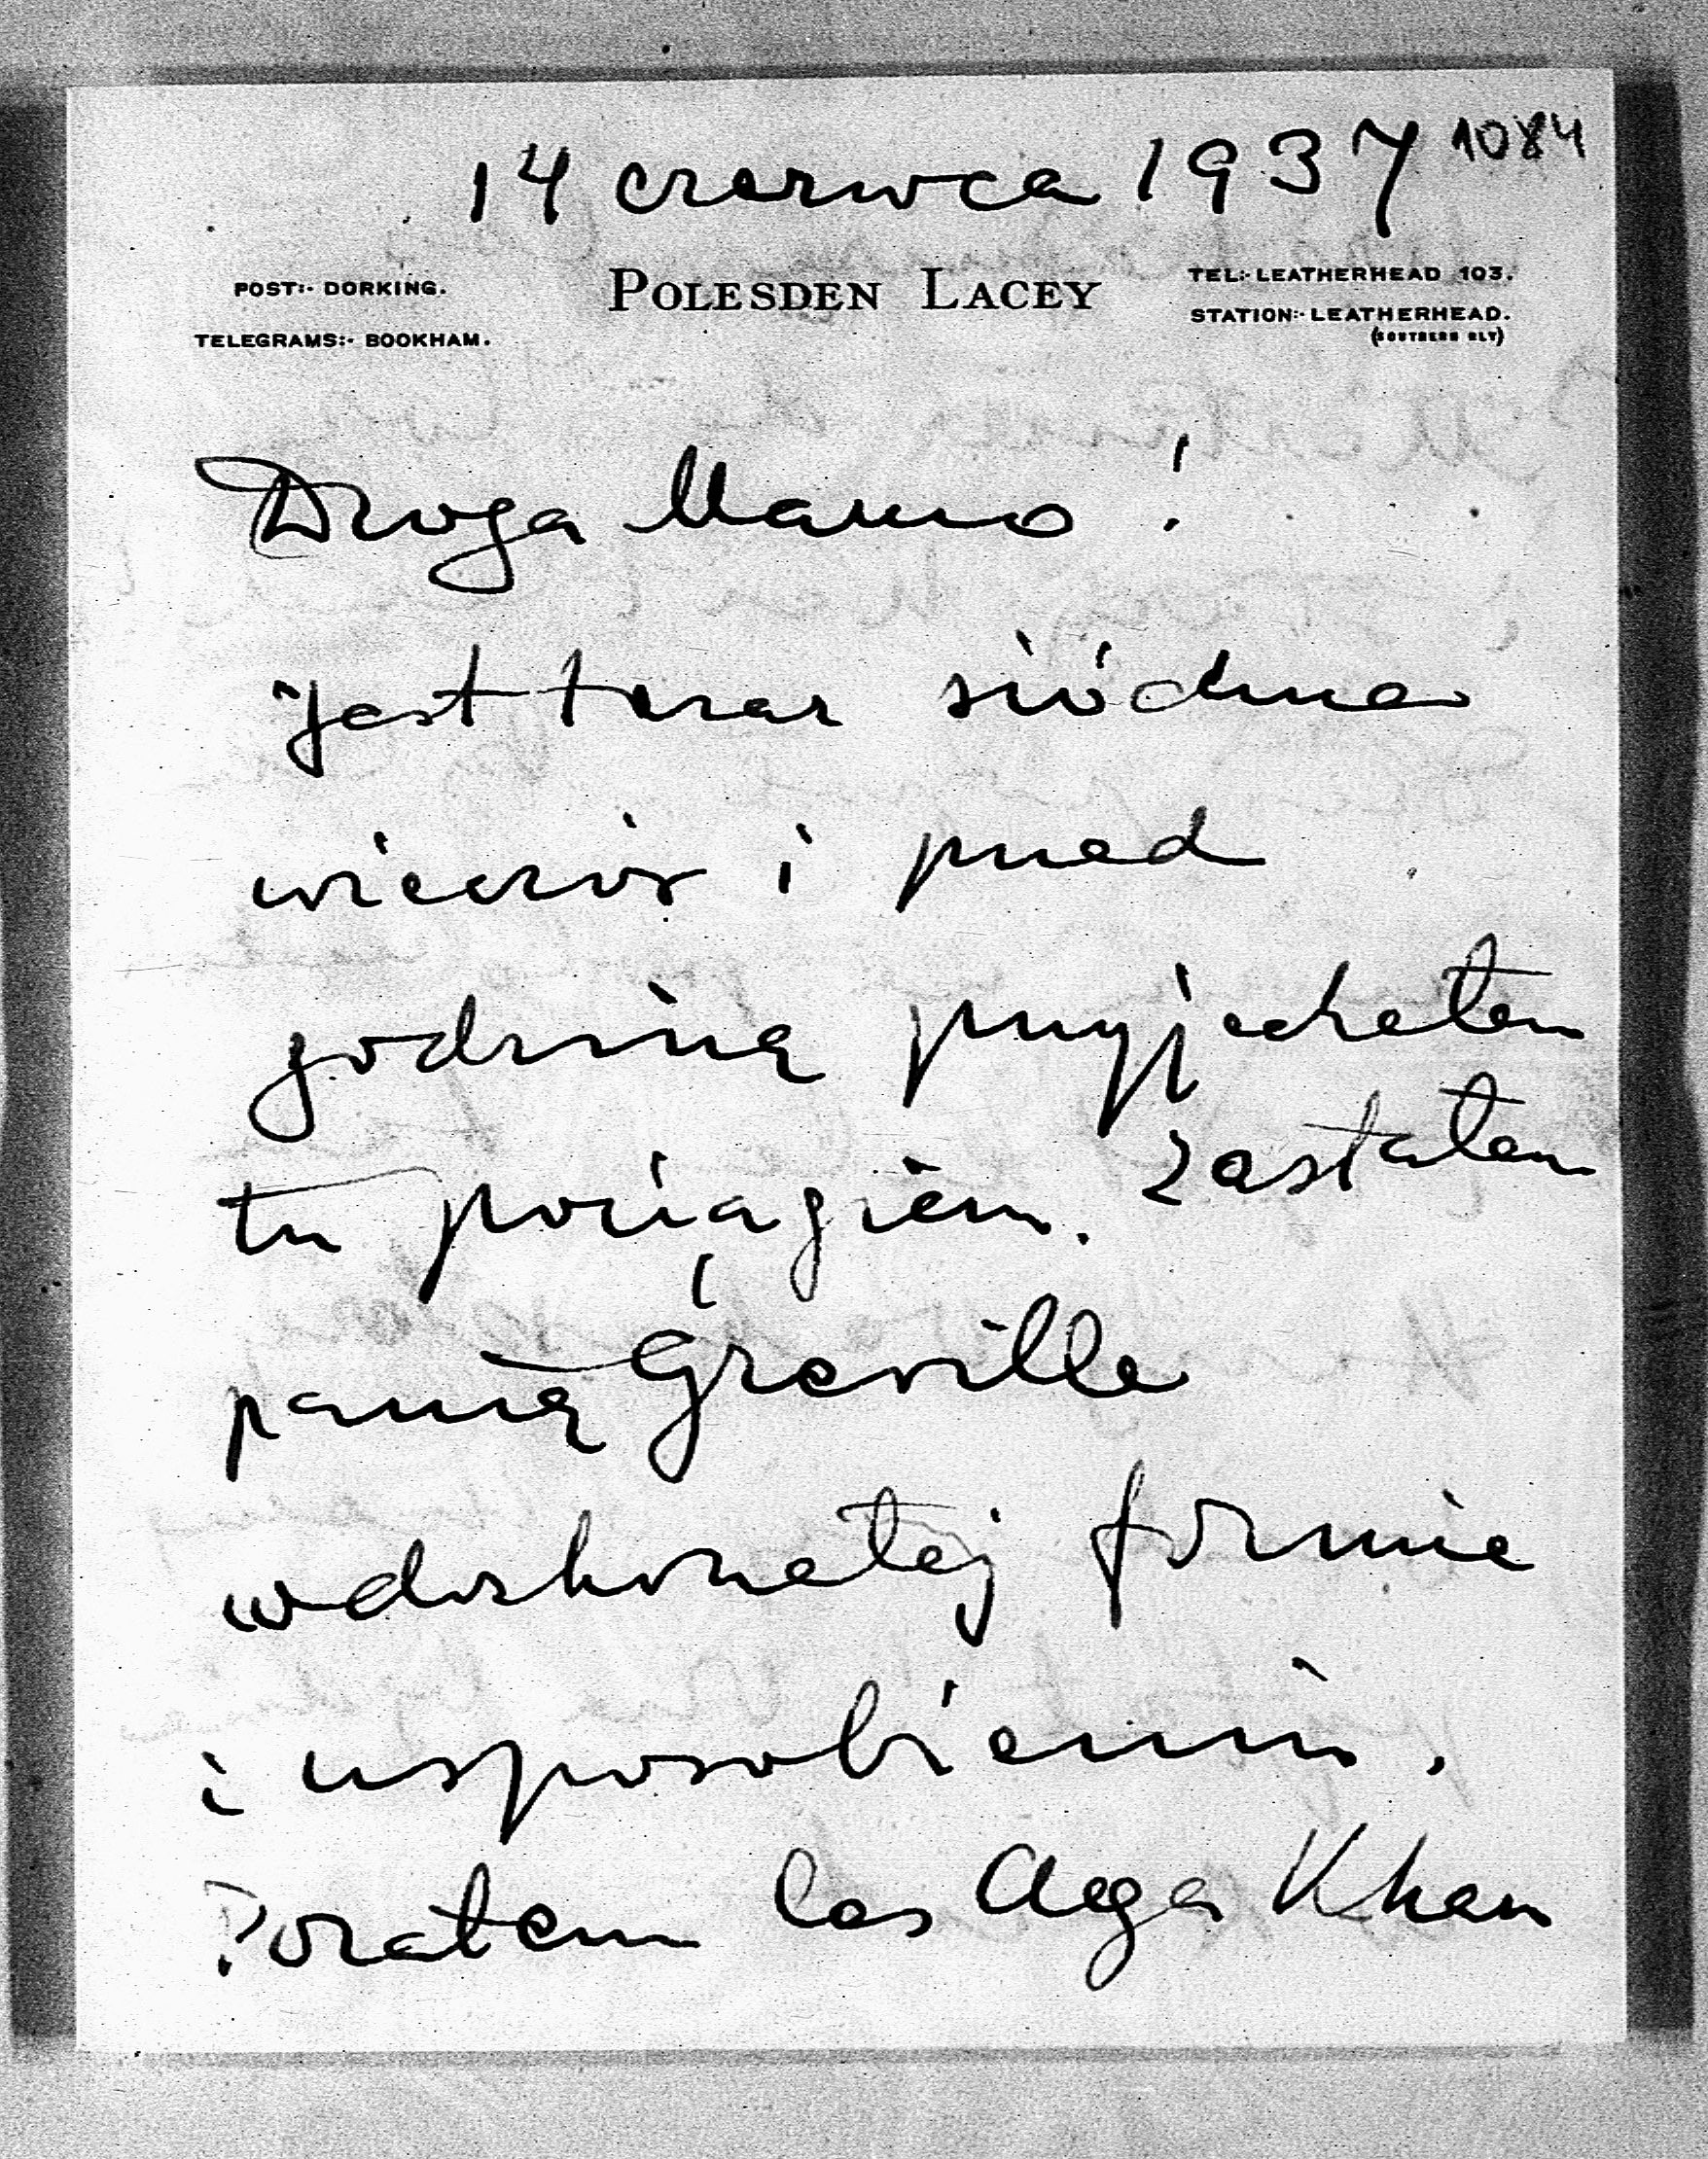 14 czerwca 1937
1084
POST:- DORKING.
TELEGRAMS:- BOOKHAM.
POLESDEN LACEY
TEL:- LEATHERHEAD 103.
STATION:- LEATHERHEAD.
(SOUTHERN RLY)
Droga Mamo!
Jest teraz siódma
wieczór i przed
godziną przyjechałem
tu pociągiem. Zastałem
panią Greville
w doskonałej formie
i usposobieniu.
Pozatem les Aga Khan